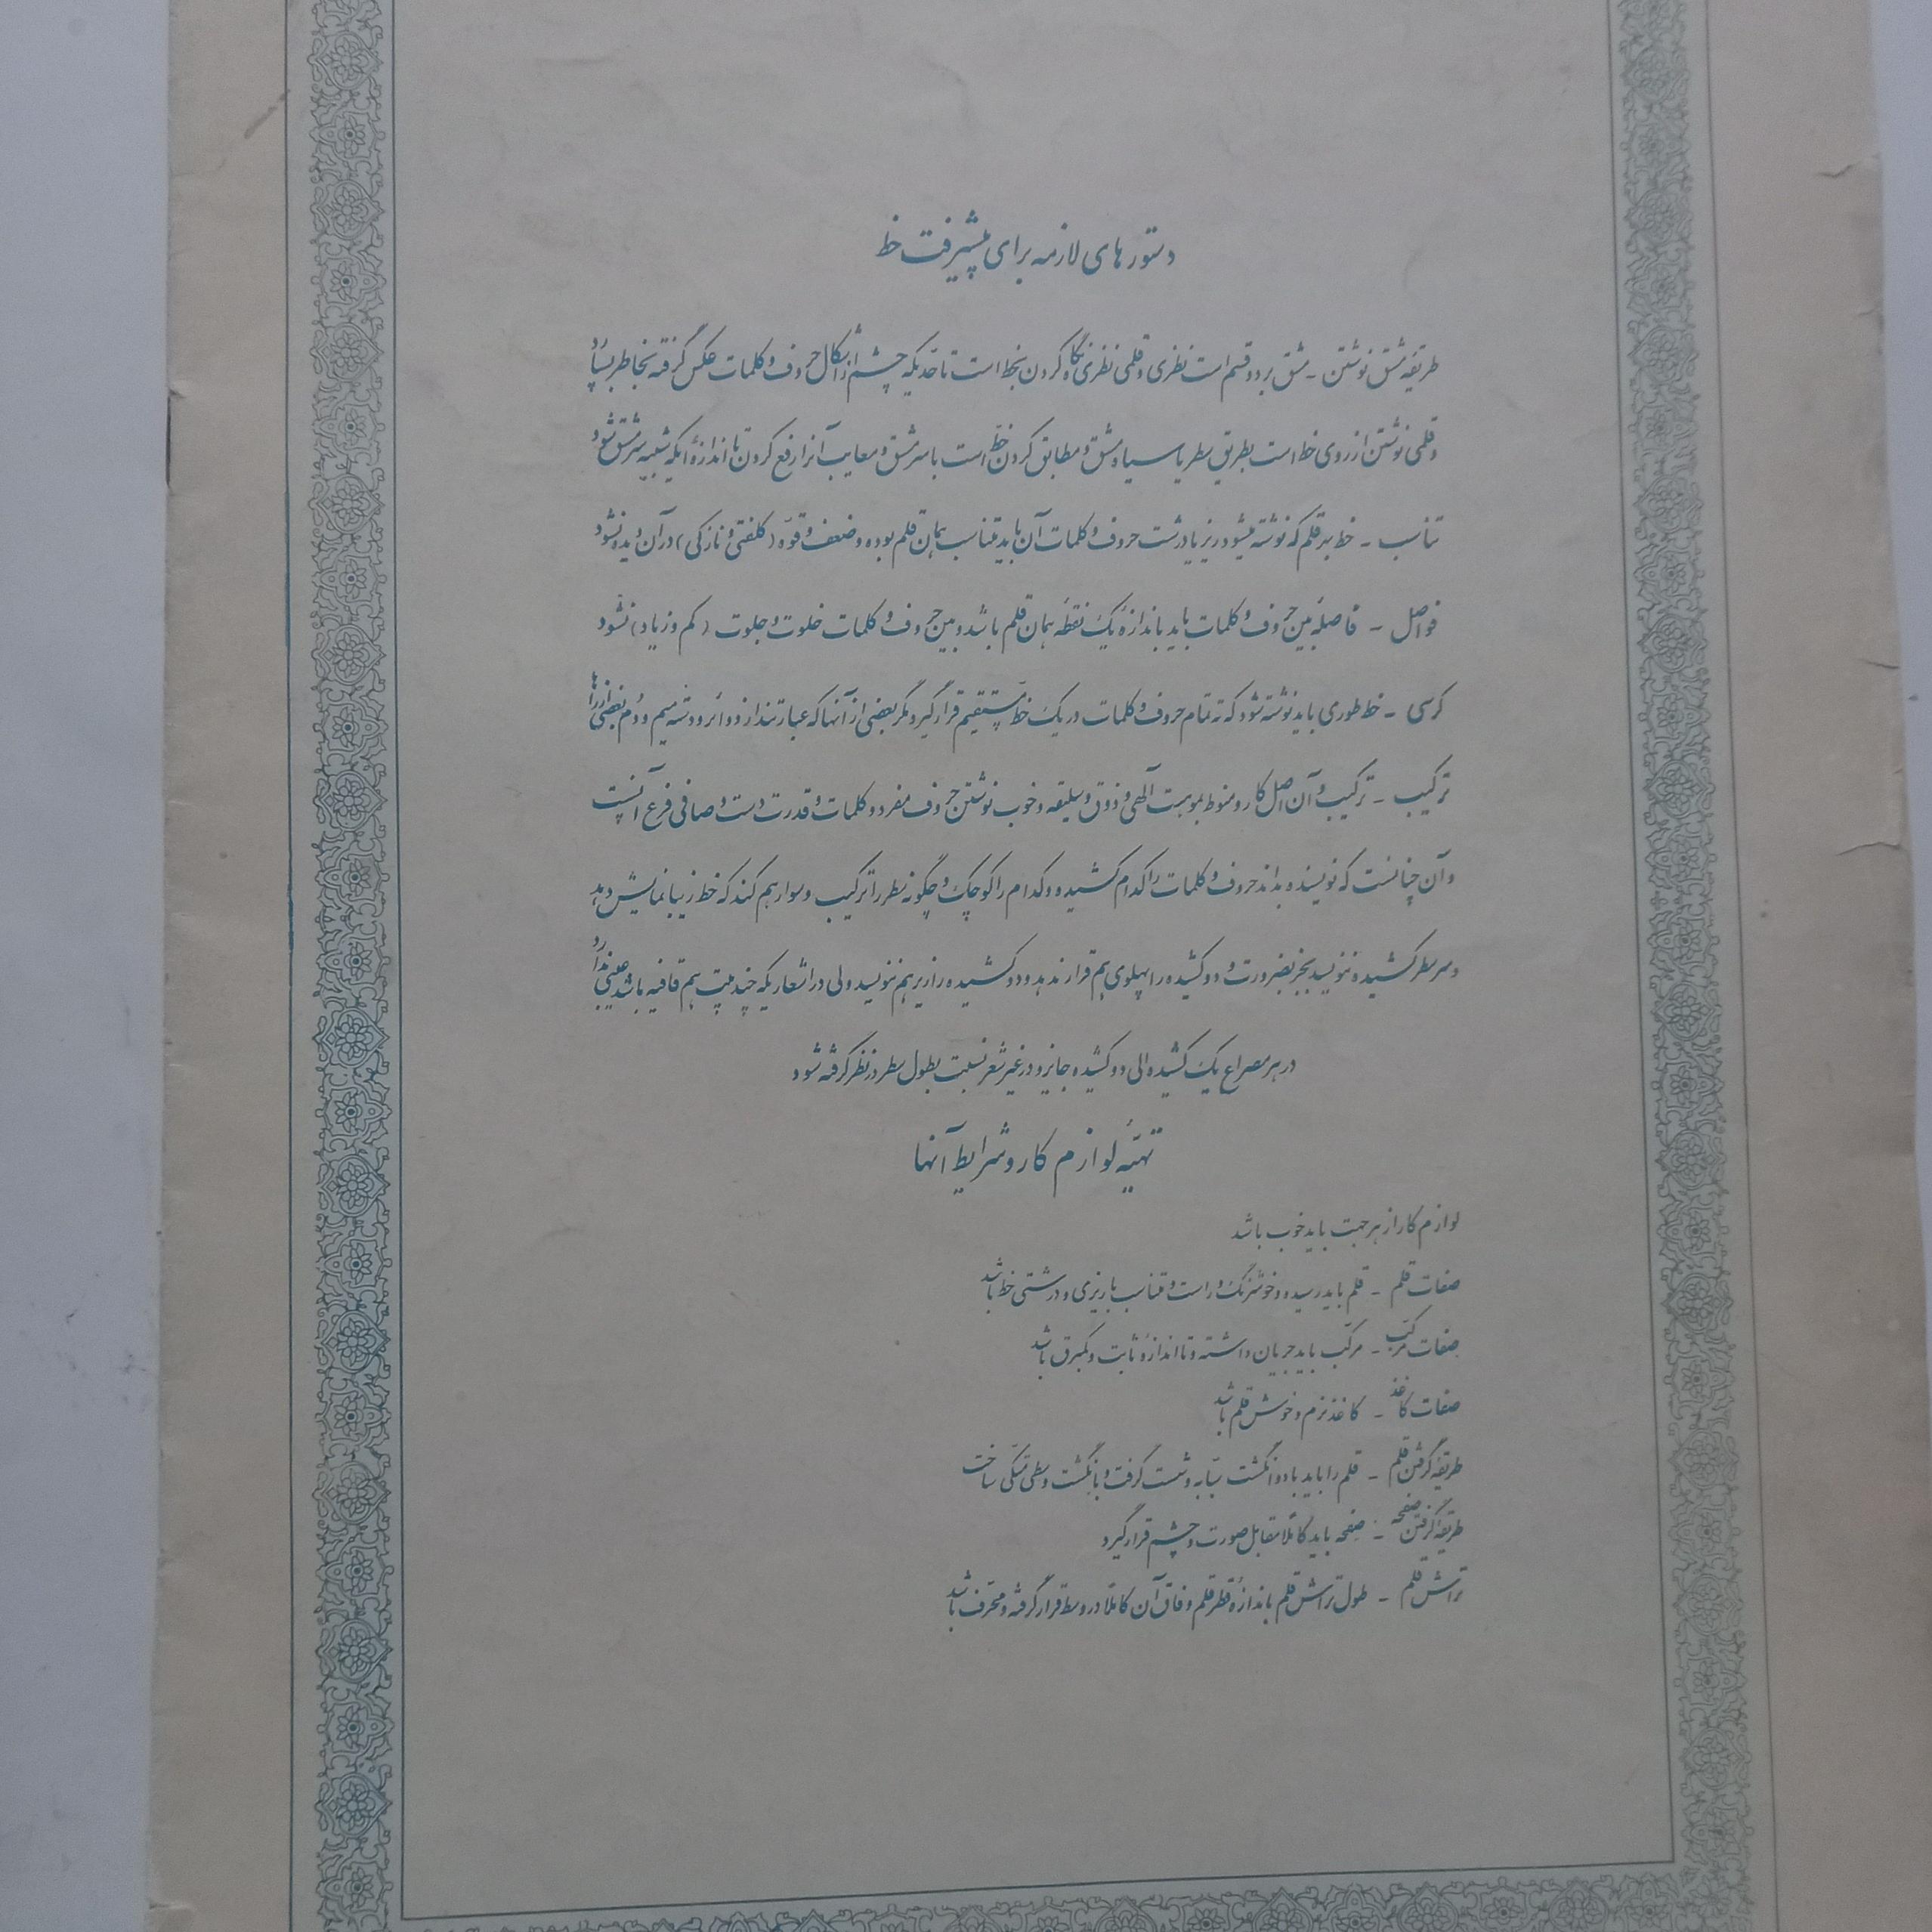 دستورهای لازمه برای پیشرفت خط
طریقهٔ مشق نوشتن - مشق بر دو قسم است نظری و قلمی نظری نگاه کردن بخط است تا حدیکه چشم از اشکال حروف و کلمات عکس گرفته بخاطر بسپارد
و قلمی نوشتن از روی خط است بطریق سطر یا سیاه مشق و مطابق کردن خط است با سرمشق و معایب آنرا رفع کردن تا اندازهٔ اینکه شبیه سرمشق شود
تناسب - خط بهر قلم که نوشته میشود ریز یا درشت حروف و کلمات آن باید متناسب بهمان قلم بوده و ضعف و قوّه (کلفتی و نازکی) در آن دیده نشود
فواصل - فاصلهٔ بین حروف و کلمات باید باندازهٔ یک نقطه همان قلم باشد و بین حروف و کلمات خلوت و جلوت (کم و زیاد) نشود
کرسی - خط طوری باید نوشته شود که ته تمام حروف و کلمات در یک خطّ مستقیم قرار گیرد مگر بعضی از آنها که عبارتند از دوائر و دسته میم و دُم بعضی از راها
ترکیب - ترکیب و آن اصل کار و منوط بموهبت آلهی و ذوق و سلیقه و خوب نوشتن حروف مفرد و کلمات و قدرت دست و صافی فرع آنست
و آن چنانست که نویسنده بداند حروف و کلمات را کدام کشیده و کدام را کوچک و چگونه سطر را ترکیب و سوار هم کند که خط زیبا نمایش دهد
و سر سطر کشیده ننویسد بجز بضرورت و دو کشیده را پهلوی هم قرار ندهد و دو کشیده را زیر هم ننویسد ولی در اشعاریکه چند بیت هم قافیه باشد عیبی ندارد
در هر مصراع یک کشیده الی دو کشیده جایز و در غیر شعر نسبت بطول سطر در نظر گرفته شود
تهیّهٔ لوازم کار و شرایط آنها
لوازم کار از هر جهت باید خوب باشد
صفات قلم - قلم باید رسیده و خوشرنگ و راست و متناسب با ریزی و درشتی خط باشد
صفات مرکّب - مرکّب باید جریان داشته و تا اندازهٔ ثابت و کمبرق باشد
صفات کاغذ - کاغذ نرم و خوش قلم باشد
طریقهٔ گرفتن قلم - قلم را باید با دو انگشت سبّابه و شست گرفت و بانگشت وسطی متّکی ساخت
طریقهٔ گرفتن صفحه - صفحه باید کاملاً مقابل صورت و چشم قرار گیرد
تراش قلم - طول تراش قلم باندازهٔ قطر قلم و فاق آن کاملاً در وسط قرار گرفته و محرّف باشد